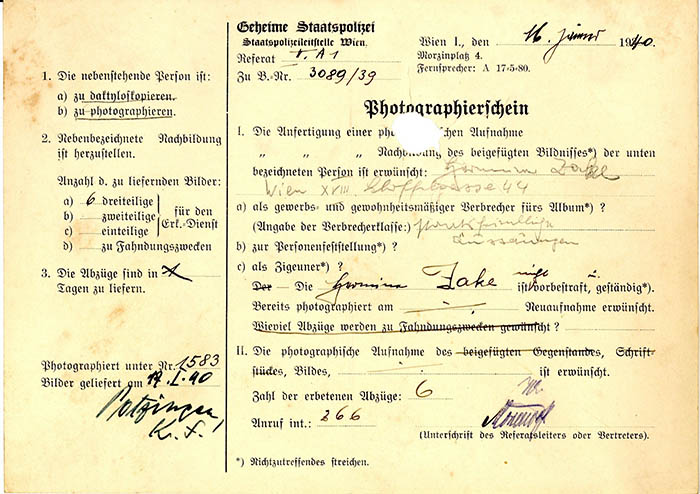 1. Die nebenstehende Person ist:
a) zu daktyloskopieren.
b) zu photographieren.
2. Nebenbezeichnete Nachbildung
ist herzustellen.
Anzahl d. zu liefernden Bilder:
a) 6 dreiteilige
b) zweiteilige
c) einteilige
d) zu Fahndungszwecken
für den
Erk.-Dienst
3. Die Abzüge sind in
Tagen zu liefern.
Photographiert unter Nr. 1583
Bilder geliefert am 17. I. 40
K. S.
Geheime Staatspolizei
Staatspolizeileitstelle Wien.
Referat A 1
Zu B.-Nr. 3089/39
Wien I., den 16. Jänner 1940.
Morzinplatz 4.
Fernsprecher: A 17-5-80.
Photographierschein
I. Die Anfertigung einer pho schen Aufnahme
„ „ „ Nachbildung des beigefügten Bildnisses*) der unten
bezeichneten Person ist erwünscht: Hermine Zake
Wien XVIII. 44
a) als gewerbs- und gewohnheitsmäßiger Verbrecher fürs Album*) ?
(Angabe der Verbrecherklasse:) staatsfeindliche
Äusserungen
b) zur Personenfeststellung*) ?
c) als Zigeuner*) ?
Der — Die Hermine Zake nicht ist vorbestraft, geständig*).
Bereits photographiert am Neuaufnahme erwünscht.
Wieviel Abzüge werden zu Fahndungszwecken gewünscht ?
II. Die photographische Aufnahme des beigefügten Gegenstandes, Schrift-
stückes, Bildes, ist erwünscht.
Zahl der erbetenen Abzüge: 6
Anruf int.: 266
(Unterschrift des Referatsleiters oder Vertreters).
*) Nichtzutreffendes streichen.